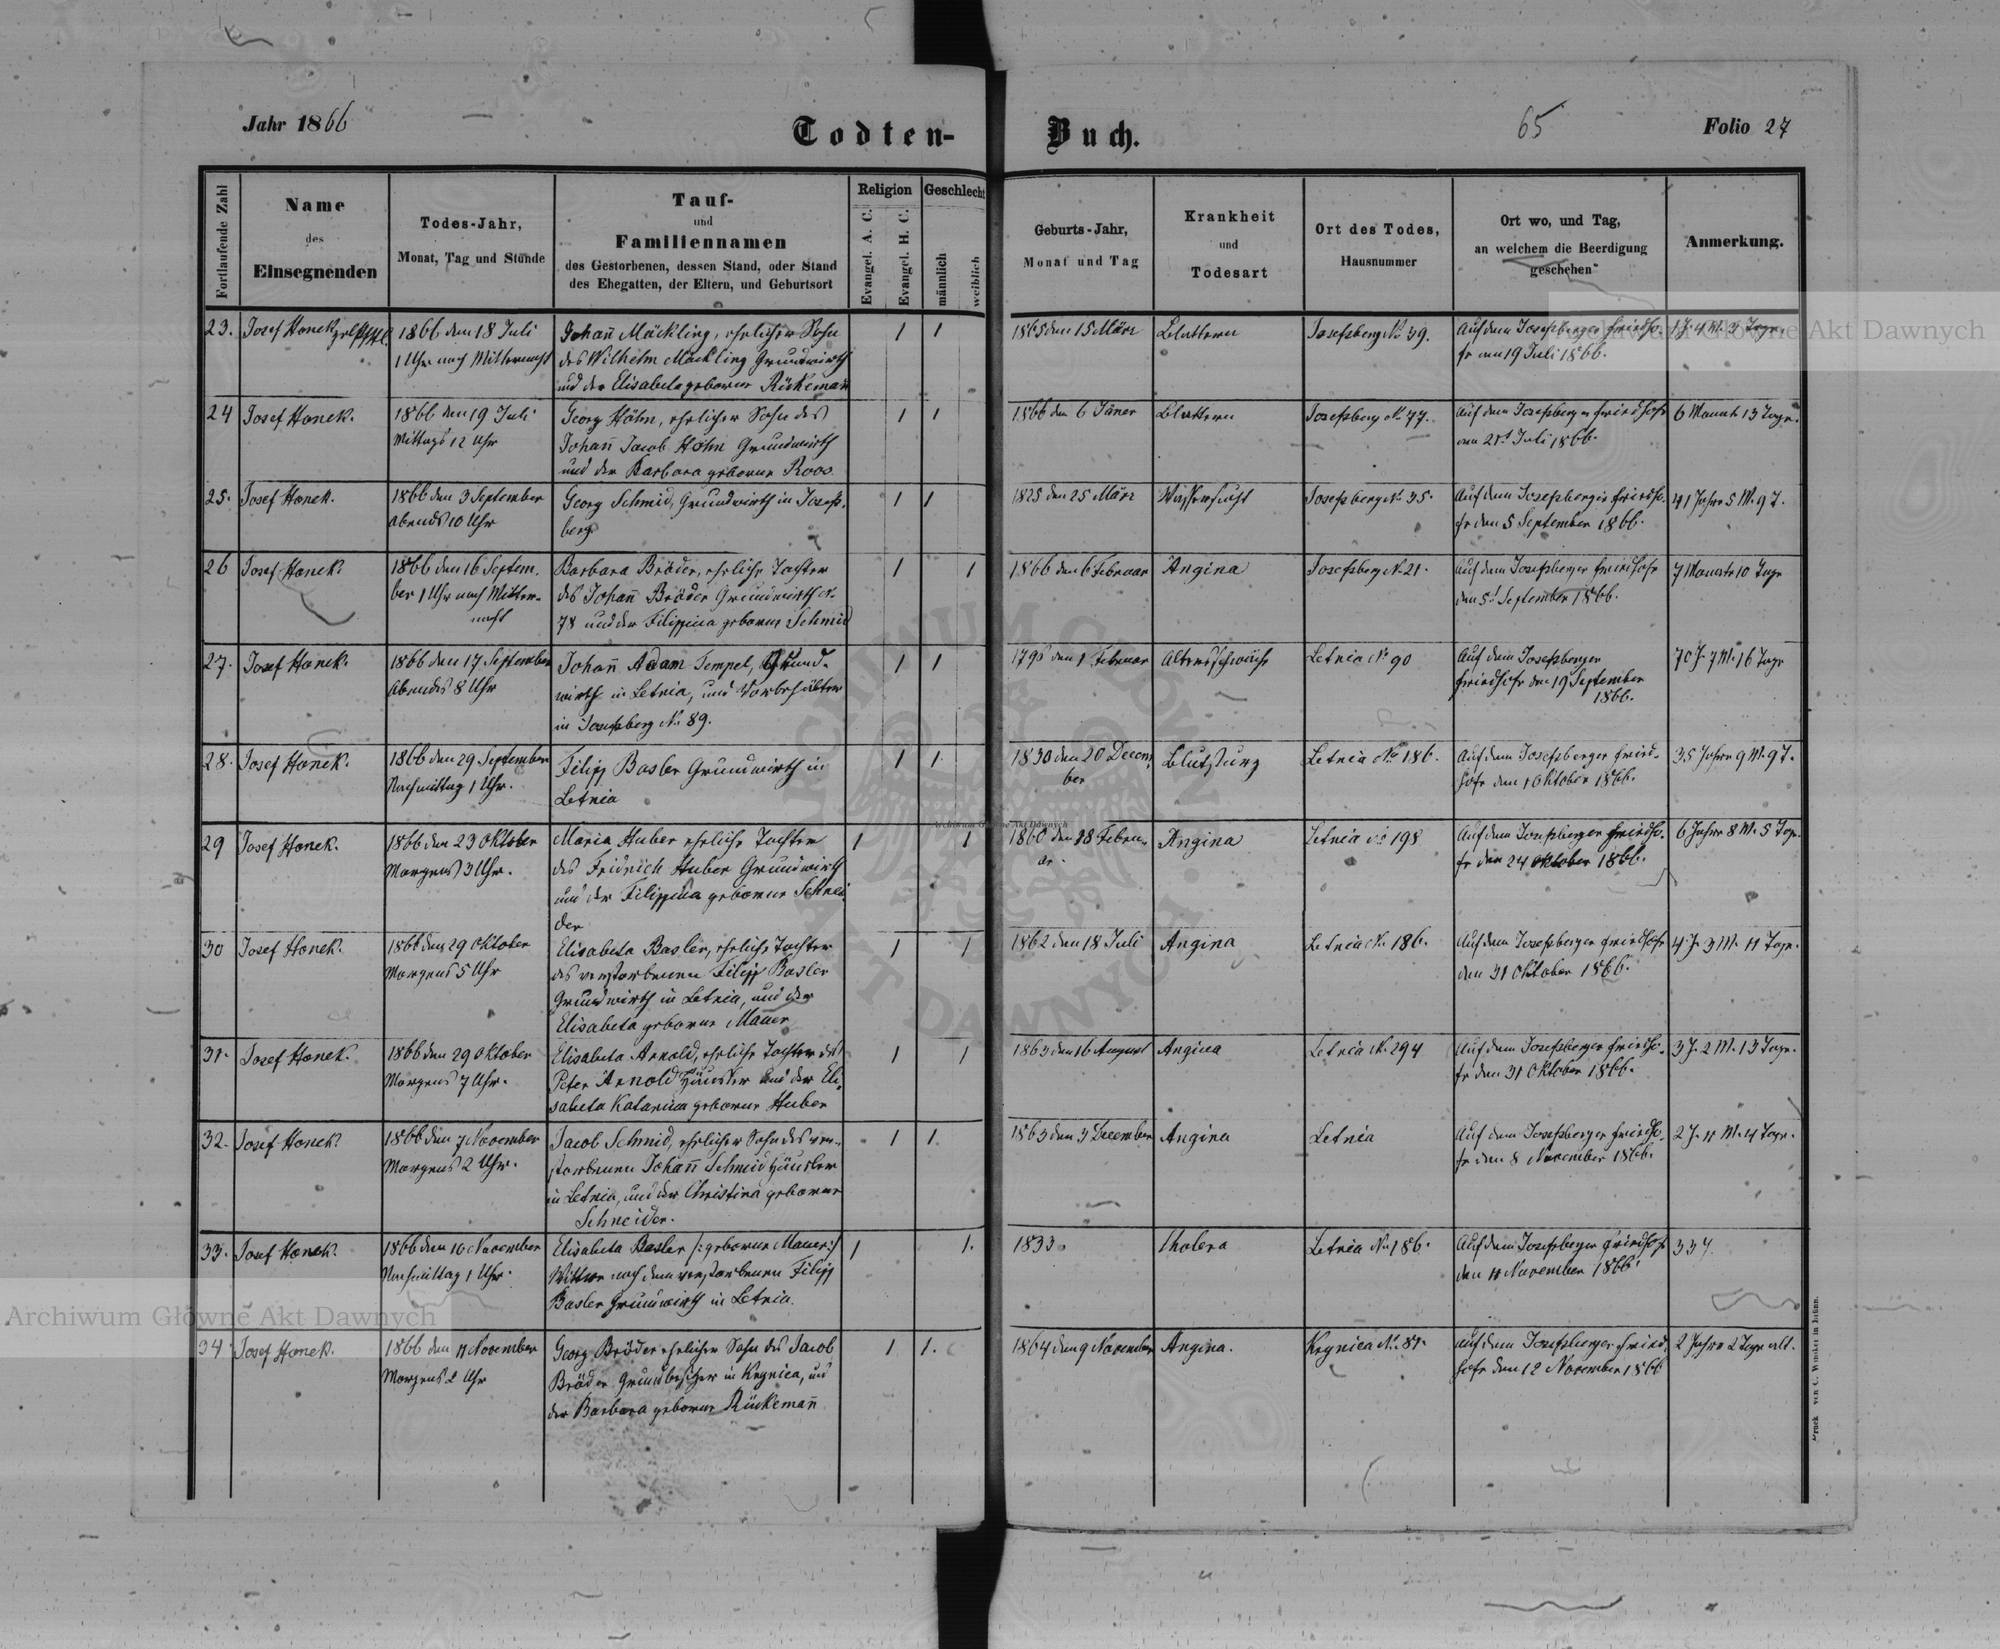 Jahr 1866
Todten-Buch.
65
Folio 27
Fortlaufende Zahl
Name
des
Einsegnenden
Todes-Jahr,
Monat, Tag und Stunde
Tauf-
und
Familiennamen
des Gestorbenen, dessen Stand, oder Stand
des Ehegatten, der Eltern, und Geburtsort
Religion
Evangel. A. C.
Evangel. H. C.
Geschlecht
männlich
weiblich
Geburts-Jahr,
Monat und Tag
Krankheit
und
Todesart
Ort des Todes,
Hausnummer
Ort wo, und Tag,
an welchem die Beerdigung
geschehen
Anmerkung.
23.
Josef Hanek
1866 den 18 Juli
1 Uhr nach Mitternacht
Johañ Mäckling, ehelicher Sohn
des Wilhelm Mäckling Grundwirth
und der Elisabeta geborne Rückemañ
1
1
1865 den 15 März
Blattern
Josefsberg No 39.
Auf dem Josefsberger Friedho-
fe den 19 Juli 1866.
1 J. 4 M. 3 Tage.
24
Josef Hanek.
1866 den 19 Juli
Mittags 12 Uhr
Georg Höhn, ehelicher Sohn des
Johañ Jacob Höhn Grundwirth
und der Barbara geborne Roos
1
1
1866 den 6 Jäner
Blattern
Josefsberg No 77.
Auf dem Josefsberger Friedhofe
den 21t Juli 1866.
6 Monate 13 Tage.
25.
Josef Hanek.
1866 den 3 September
Abends 10 Uhr
Georg Schmid, Grundwirth in Josefs-
berg
1
1
1825 den 25 März
Wassersucht
Josefsberg No 35.
Auf dem Josefsberger Friedho-
fe den 5 September 1866.
41 Jahre 5 M. 9 T.
26
Josef Hanek.
1866 den 16 Septem-
ber 1 Uhr nach Mitter-
nacht
Barbara Bröder, eheliche Tochter
des Johañ Bröder Grundwirth No
78 und der Filippina geborne Schmid
1
1
1866 den 6 Februar
Angina
Josefsberg No 21.
Auf dem Josefsberger Friedhofe
den 5t September 1866.
7 Monate 10 Tage
27.
Josef Hanek.
1866 den 17 September
Abends 8 Uhr
Johañ Adam Tempel, Grund-
wirth in Letnia, und Vorbehälter
in Josefsberg No. 89.
1
1
1796 den 1 Februar
Altersschwäche
Letnia No 90
Auf dem Josefsberger
Friedhofe den 19 September
1866.
70 J. 7 M. 16 Tage
28.
Josef Hanek.
1866 den 29 September
Nachmittag 1 Uhr.
Filipp Basler Grundwirth in
Letnia
1
1
1830 den 20 Decem-
ber
Blutsturz
Letnia No 186.
Auf dem Josefsberger Fried-
hofe den 1 Oktober 1866.
35 Jahre 9 M. 9 T.
29
Josef Hanek.
1866 den 23 Oktober
Morgens 3 Uhr.
Maria Huber eheliche Tochter
des Fridrich Huber Grundwirth
und der Filippina geborne Schnei-
der
1
1
1860 den 18 Febru-
ar.
Angina
Letnia No 198
Auf dem Josefsberger Friedho-
fe den 24 Oktober 1866.
6 Jahre 8 M. 5 Tage.
30
Josef Hanek.
1866 den 29 Oktober
Morgens 5 Uhr
Elisabeta Basler, eheliche Tochter
des verstorbenen Filipp Basler
Grundwirth in Letnia, und der
Elisabeta geborne Mauer
1
1
1862 den 18 Juli
Angina
Letnia No 186.
Auf dem Josefsberger Friedhofe
den 31 Oktober 1866.
4 J. 3 M. 11 Tage.
31.
Josef Hanek.
1866 den 29 Oktober
Morgens 7 Uhr.
Elisabeta Arnold, eheliche Tochter des
Peter Arnold Häusler und der Eli-
sabeta Katarina geborne Huber
1
1
1863 den 16 August
Angina
Letnia No 294
Auf dem Josefsberger Friedho-
fe den 31 Oktober 1866.
3 J. 2 M. 13 Tage.
32.
Josef Hanek.
1866 den 7 November
Morgens 2 Uhr.
Jacob Schmid, ehelicher Sohn des ver-
storbenen Johañ Schmid Häusler
in Letnia, und der Christina geborne
Schneider.
1
1
1863 den 3 December
Angina
Letnia
Auf dem Josefsberger Friedho-
fe den 8 November 1866.
2 J. 11 M. 4 Tage.
33.
Josef Hanek.
1866 den 10 November
Nachmittag 1 Uhr.
Elisabeta Basler /: geborne Mauer:/
Wittwe nach dem verstorbenen Filipp
Basler Grundwirth in Letnia.
1
1.
1833.
Cholera
Letnia No 186.
Auf dem Josefsberger Friedhofe
den 11 November 1866.
33 J.
34
Josef Hanek.
1866 den 11 November
Morgens 2 Uhr
Georg Bröder ehelicher Sohn des Jacob
Bröder Grundbesitzer in Krynica, und
der Barbara geborne Rückemañ
1
1.
1864 den 9 November
Angina.
Krynica No. 81.
Auf dem Josefsberger Fried-
hofe den 12 November 1866
2 Jahre 2 Tage alt.
Druck von C. Winiker in Brünn.
Archiwum Główne Akt Dawnych
Archiwum Główne Akt Dawnych
Archiwum Główne Akt Dawnych
ARCHIWUM GŁÓWNE AKT DAWNYCH